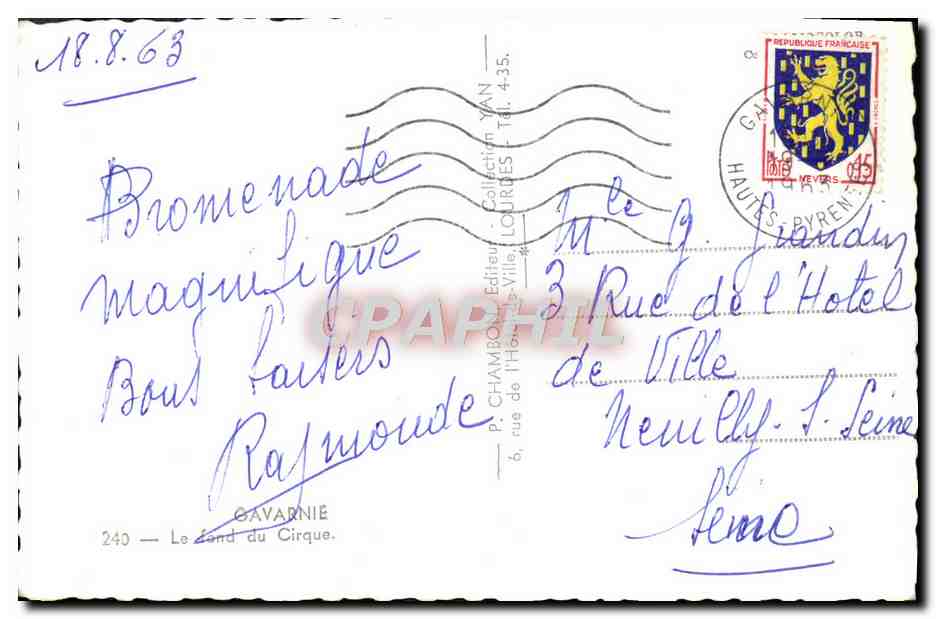 18.8.63
Promenade
magnifique
Bons baisers
Raymonde
GAVARNIE
240 — Le fond du Cirque.
P. CHAMBON, Editeur - Collection YAN
6, rue de l'Hôtel-de-Ville, LOURDES - Tél. 4-35.
REPUBLIQUE FRANÇAISE
POSTES
0,15
NEVERS
HAUTES-PYRENEES
Mlle G. Grandin
3 Rue de l'Hotel
de Ville
Neuilly-s-Seine
Seine
CPAPHIL